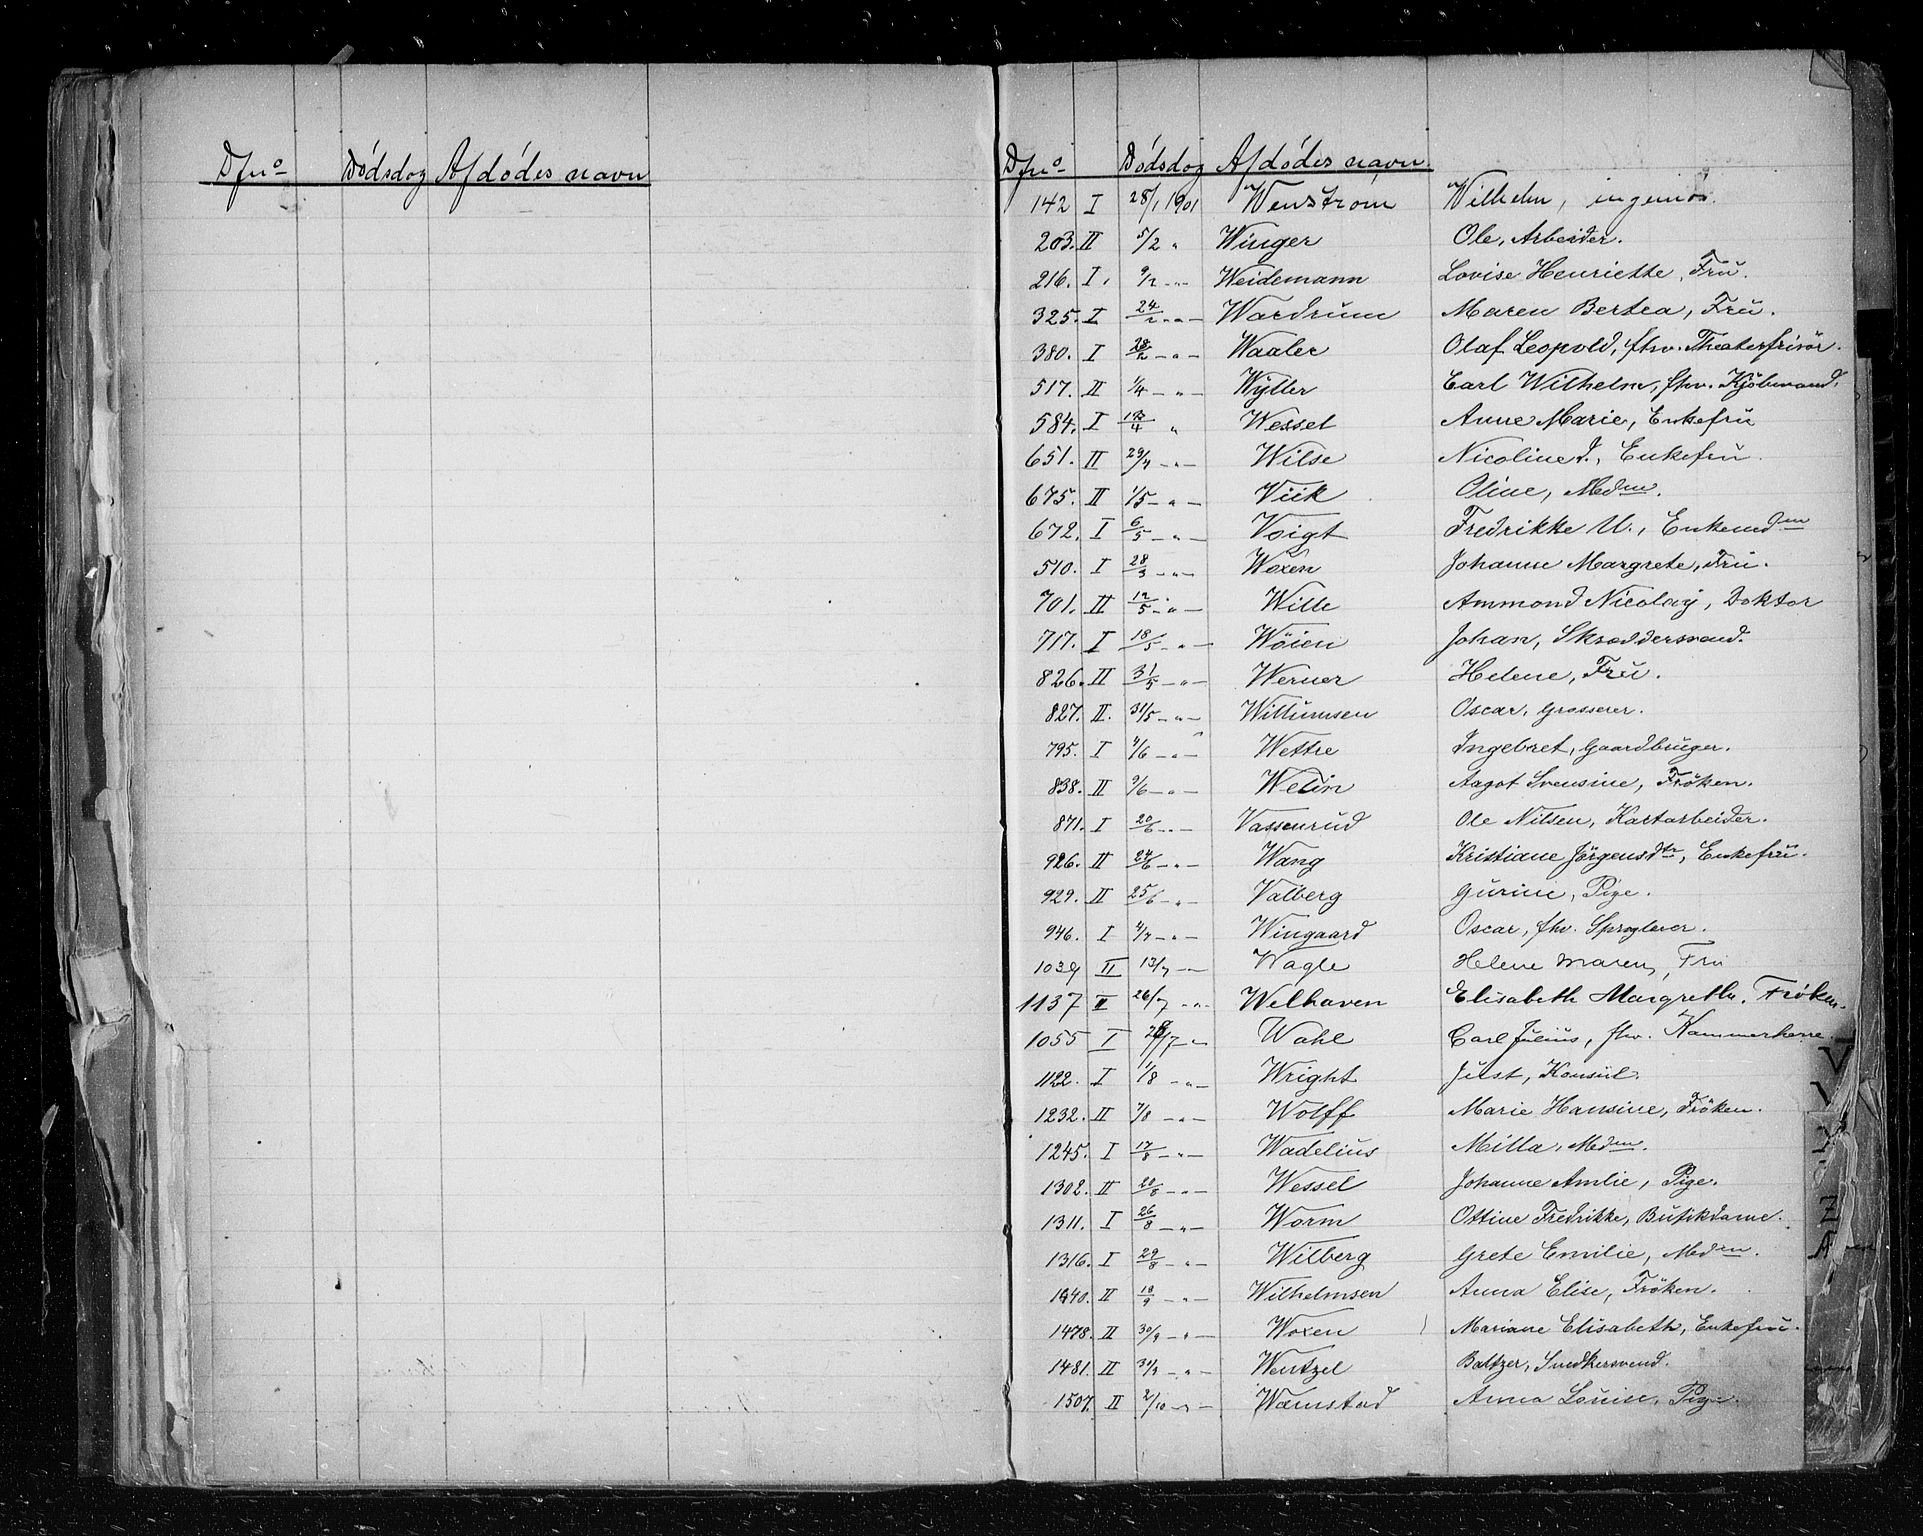 Dfno Dödsdag Afdödes navn
Dfno Dödsdag Afdödes navn
142 I 28/1 1901 Wenström Wilhelm, ingeniör.
203. II 5/2 " Winger Ole, Arbeider.
216. I. 9/2 -"- Weidemann Lovise Henriette, Fru.
325. I 24/2 -"- Wardrum Maren Bertea, Fru.
380. I 28/2 -"- Waaler Olaf Leopold, fhv. Theaterfrisör.
517. II 1/4 -"- Wyller Carl Wilhelm, fhv. Kjöbmand.
584. I /4 " Wessel Anne Marie, Enkefru
651. II 29/4 -"- Wilse Nicoline d., Enkefru.
675. II 1/5 -"- Viik Oline, Mdm.
672. I 6/5 -"- Voigt Fredrikke U., Enkemdm
510. I 28/3 -"- Woxen Johanne Margrete, Fru.
701. II 12/5 -"- Wille Ammond Nicolay, Doktor
717. I 18/5 -"- Wöien Johan, Skræddersvend.
826. II 31/5 -"- Werner Helene, Fru.
827. II. 31/5 -"- Willumsen Oscar, Grosserer.
795. I 4/6 -"- Wettre Ingebret, Gaardbruger.
838. II 9/6 -"- Welin Aagot Svensine, Fröken.
871. I 20/6 -"- Vassenrud Ole Nilsen, Kartarbeider.
926. II 24/6 -"- Wang Kristiane Jörgensdtr, Enkefru.
929. II 25/6 -"- Valberg Gurine, Pige.
946. I 4/7 -"- Wingaard Oscar, fhv. Sproglærer.
1039 II 13/7 -"- Wagle Helene Maren, Fru
1137 II 26/7 -"- Welhaven Elisabeth Margrethe. Fröken.
1055 I 28/7 -"- Wahl Carl Julius, fhv. Kammerherre
1122. I 1/8 -"- Wright Just, Konsul.
1232. II 7/8 -"- Wolff Marie Hansine, Fröken.
1245. I 17/8 -"- Wadelius Milla, Mdm.
1302. II 20/8 -"- Wessel Johanne Amlie, Pige.
1311. I 26/8 -"- Worm Ottine Fredrikke, Butikdame.
1316. I 29/8 -"- Wilberg Grete Emilie, Mdm.
1340. II 18/9 -"- Wilhelmsen Anna Elise, Fröken.
1478. II 30/9 -"- Woxen Mariane Elisabeth, Enkefru.
1481. II 30/9 -"- Wentzel Baltzer, Snedkersvend.
1507. II 2/10 -"- Wamstad Anna Louise, Pige.